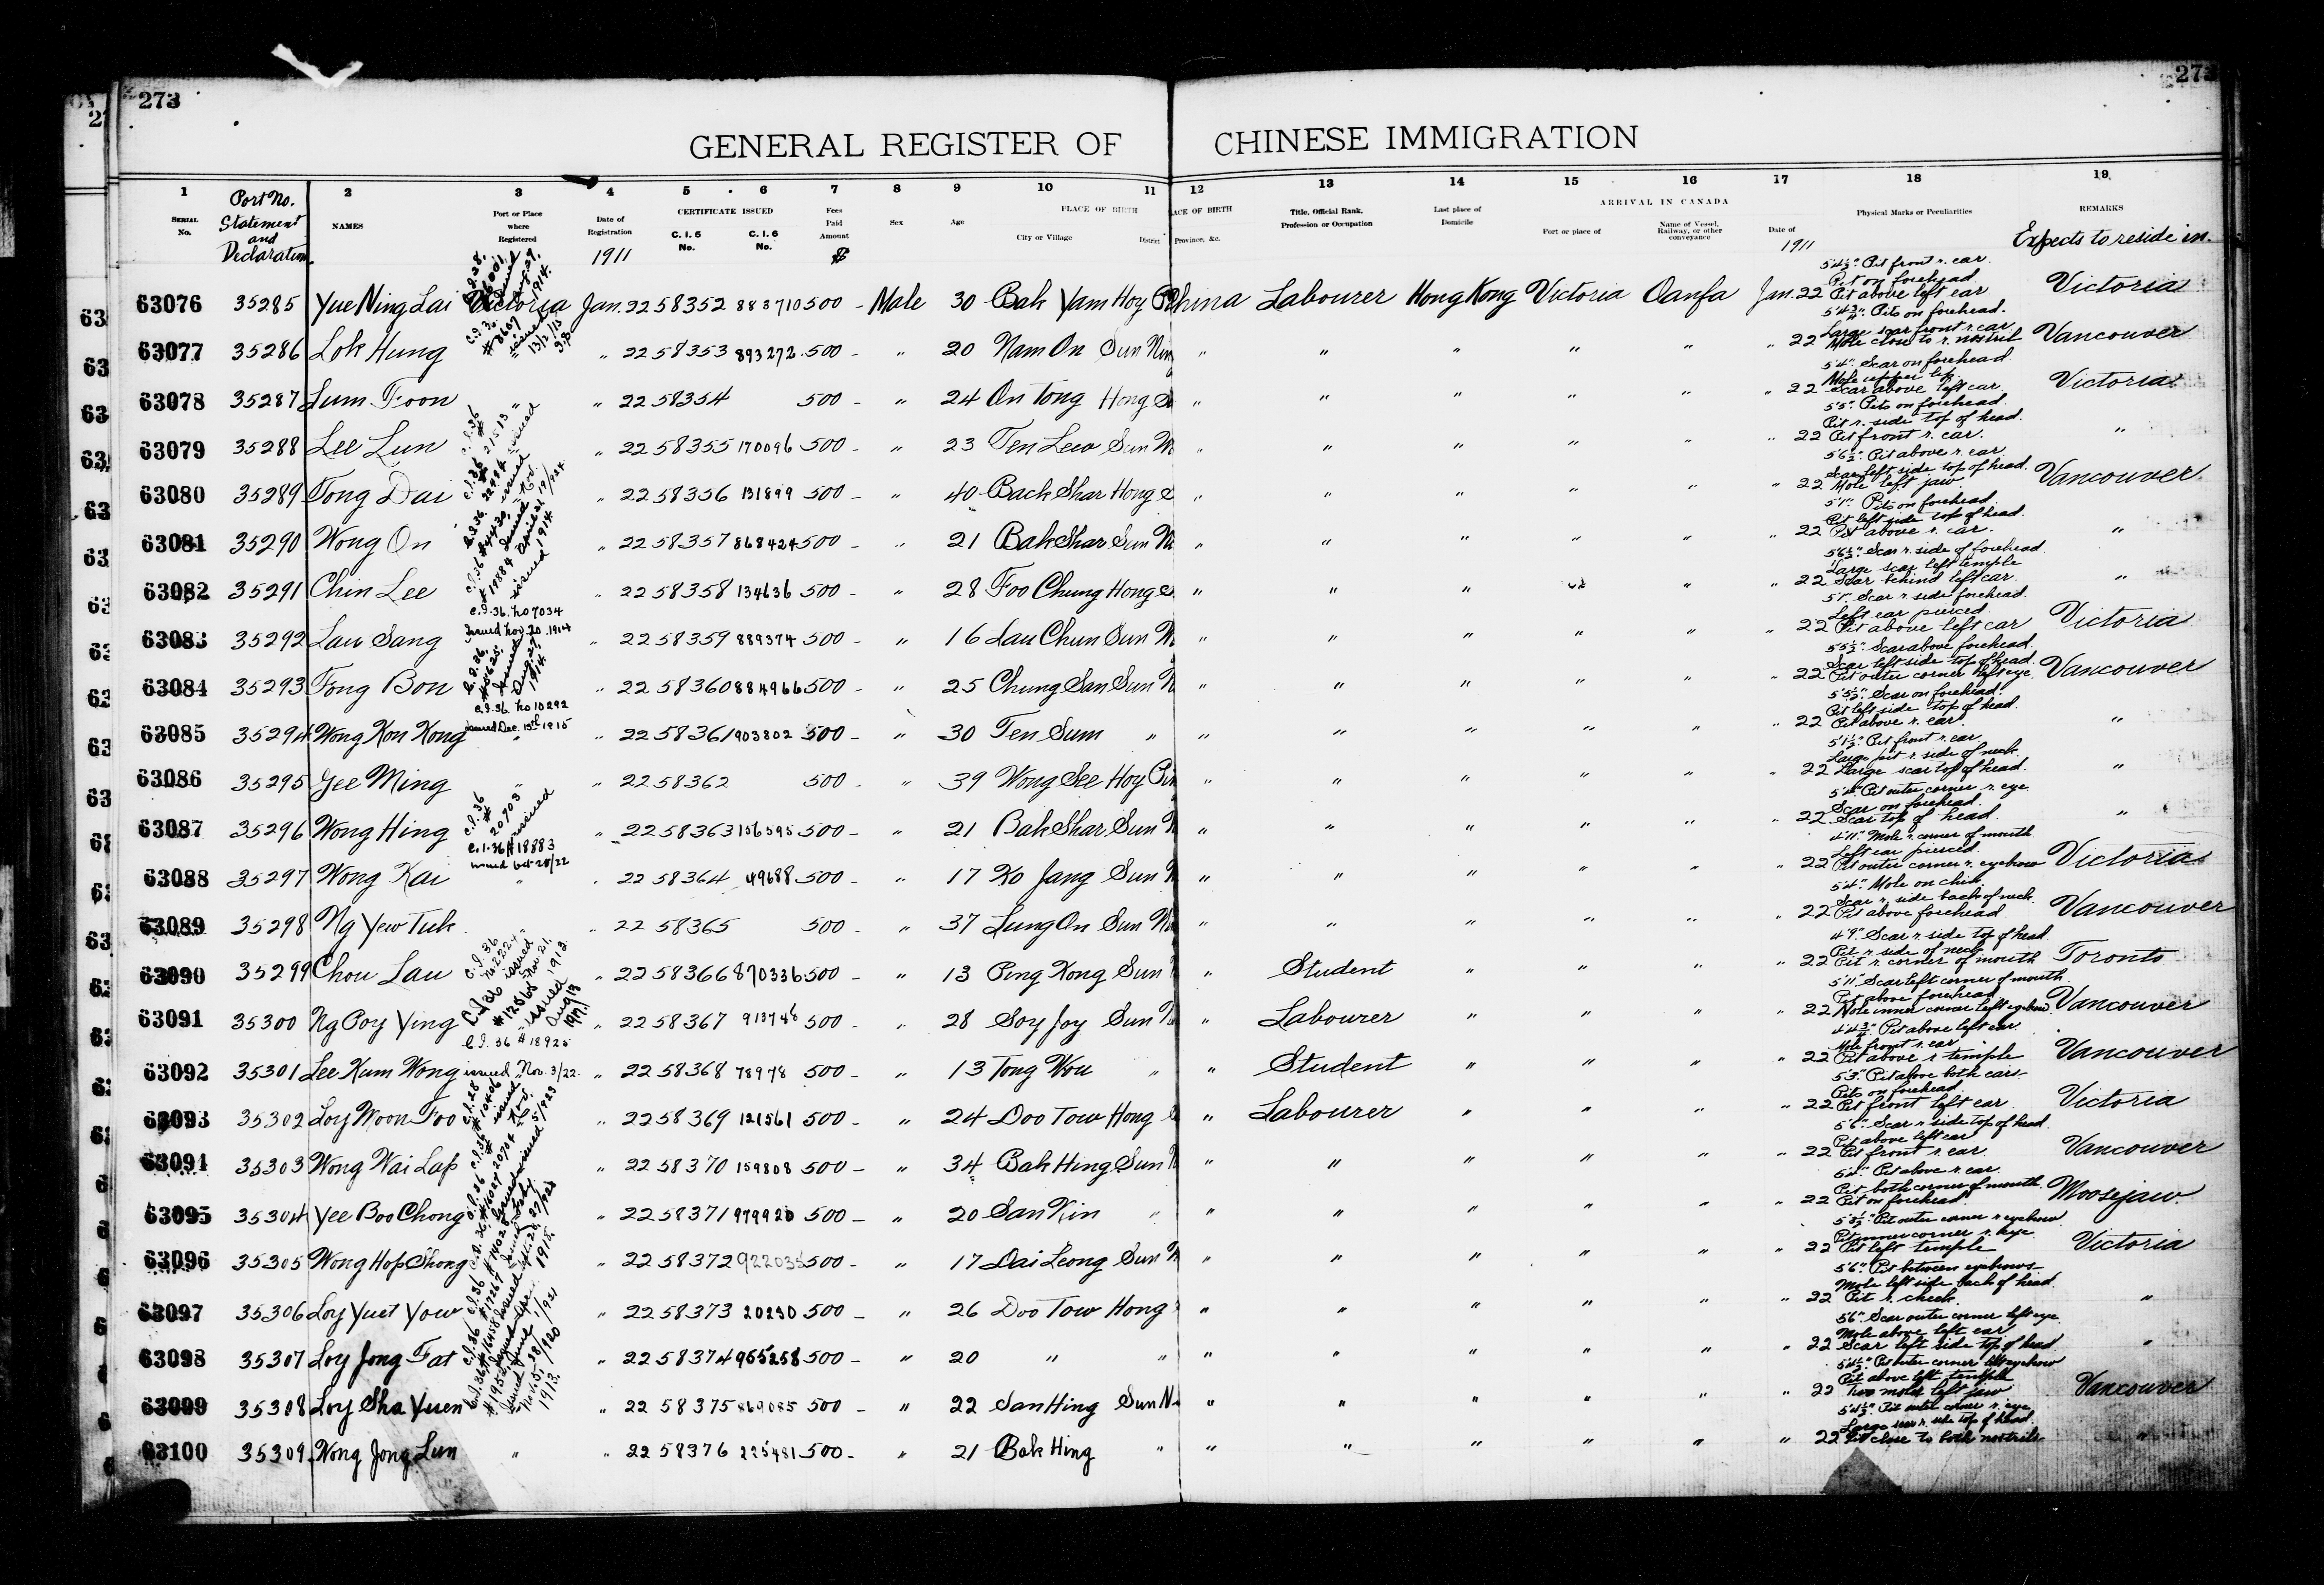 273
273
GENERAL REGISTER OF CHINESE IMMIGRATION
1 Port No. 2 3 4 5 6 7 8 9 10 11 12 13 14 15 16 17 18 19
SERIAL No. Statement and Declaration NAMES Port or Place where Registered Date of Registration CERTIFICATE ISSUED C. I. 5 No. C. I. 6 No. Fees Paid Amount Sex Age PLACE OF BIRTH City or Village District PLACE OF BIRTH Province, &c. Title, Official Rank, Profession or Occupation Last place of Domicile ARRIVAL IN CANADA Port or place of Name of Vessel, Railway, or other conveyance Date of Physical Marks or Peculiarities REMARKS
1911 $ 1911 Expects to reside in.
63076 35285 Yue Ning Lai Victoria Jan. 22 58352 883710 500 - Male 30 Bak Yam Hoy China Labourer Hong Kong Victoria Oanfa Jan. 22 5'4½" Pit front r. ear Pit on forehead Pit above left ear Victoria
63077 35286 Lok Hung " 22 58353 893272 500 - " 20 Nam On Sun Nin " " " " " " 22 5'4¾" Pits on forehead. Large scar front r. ear Mole close to r. nostril Vancouver
63078 35287 Lum Foon " " 22 58354 500 - " 24 On Tong Hong " " " " " " 22 5'4" Scar on forehead Mole upper lip Scar above left ear Victoria
63079 35288 Lee Lun " 22 58355 170096 500 - " 23 Ten Lew Sun " " " " " " 22 5'5" Pits on forehead. Pit r. side top of head. Pit front r. ear. "
63080 35289 Tong Dai " 22 58356 131899 500 - " 40 Back Shar Hong " " " " " " 22 5'6½" Pit above r. ear Scar left side top of head. Mole left jaw Vancouver
63081 35290 Wong On " 22 58357 868424 500 - " 21 Bak Shar Sun " " " " " " 22 5'1" Pits on forehead Pit left side top of head. Pit above r. ear. "
63082 35291 Chin Lee " 22 58358 134636 500 - " 28 Foo Chung Hong " " " " " " 22 5'6½" Scar r. side of forehead Large scar left temple Scar behind left ear. "
63083 35292 Lau Sang C.I.36. No 7034 Issued Nov. 20. 1914 " 22 58359 889374 500 - " 16 Lau Chun Sun " " " " " " 22 5'1" Scar r. side forehead. Left ear pierced Pit above left ear Victoria
63084 35293 Fong Bon " 22 58360 884966 500 - " 25 Chung San Sun " " " " " " 22 5'5½" Scar above forehead. Scar left side top of head. Pit outer corner left eye. Vancouver
63085 35294 Wong Kon Kong C.I.36. No 10292 issued Dec. 13th 1915 " " 22 58361 903802 500 - " 30 Ten Sum " " " " " " " 22 5'5½" Scar on forehead. Pit left side top of head. Pit above r. ear. "
63086 35295 Yee Ming " " 22 58362 500 - " 39 Wong See Hoy " " " " " " 22 5'1½" Pit front r. ear Large pit r. side of neck. Large scar top of head. "
63087 35296 Wong Hing C.I.36 # 20703 issued " 22 58363 156595 500 - " 21 Bak Shar Sun " " " " " " 22 5'4" Pit outer corner r. eye Scar on forehead. Scar top of head. "
63088 35297 Wong Kai C.I.36 # 18883 issued Oct 28/22 " " 22 58364 49688 500 - " 17 Ko Jang Sun " " " " " " 22 4'11" Mole r. corner of mouth Left ear pierced. Pit outer corner r. eyebrow Victoria
63089 35298 Ng Yew Tuk " 22 58365 500 " 37 Lung On Sun " " " " " " 22 5'4" Mole on chin Scar r. side back of neck. Pit above forehead Vancouver
63090 35299 Chou Lau " 22 58366 870336 500 - " 13 Ping Kong Sun " Student " " " " 22 4'9" Scar r. side top of head Pit r. side of neck Pit r. corner of mouth Toronto
63091 35300 Ng Poy Ying " 22 58367 913748 500 - " 28 Soy Joy Sun " Labourer " " " " 22 5'11" Scar left corner of mouth Pit above forehead Mole inner corner left eyebrow Vancouver
63092 35301 Lee Kum Wong C.I. 36 # 18925 issued Nov. 3/22 " 22 58368 78978 500 - " 13 Tong Wou " " Student " " " " 22 4'4¾" Pit above left ear. Mole front r. ear Pit above r temple Vancouver
63093 35302 Loy Woon Foo " 22 58369 121561 500 - " 24 Doo Tow Hong " Labourer " " " " 22 5'3" Pit above both ears Pits on forehead Pit front left ear Victoria
63094 35303 Wong Wai Lap " 22 58370 159808 500 - " 34 Bak Hing Sun " " " " " " 22 5'6" Scar r side top of head. Pit above left ear Pit front r. ear Vancouver
63095 35304 Yee Boo Chong " 22 58371 979920 500 - " 20 San Kin " " " " " " " 22 5'4" Pit above r. ear. Pit both corner of mouth. Pit on forehead Moosejaw.
63096 35305 Wong Hop Shong " 22 58372 922035 500 - " 17 Dai Leong Sun " " " " " " 22 Pit outer corner r eyebrow Pit inner corner r. eye Pit left temple Victoria
63097 35306 Loy Yuet Yow " 22 58373 20230 500 - " 26 Doo Tow Hong " " " " " " 22 5'6" Pit between eyebrows Mole left side back of head. Pit r. cheek "
63098 35307 Loy Jong Fat " 22 58374 965258 500 - " 20 " " " " " " " " 22 5'6" Scar outer corner left eye. Mole above left ear Scar left side top of head "
63099 35308 Loy Sha Yuen " 22 58375 869085 500 - " 22 San Hing Sun N " " " " " " 22 5'4½" Pit outer corner left eyebrow Pit above left temple Two moles left jaw Vancouver
63100 35309 Wong Jong Lun " " 22 58376 225481 500 - " 21 Bak Hing " " " " " " " 22 5'4½" Pit outer corner r. eye Large scar r. side top of head. Pit close to both nostrils "